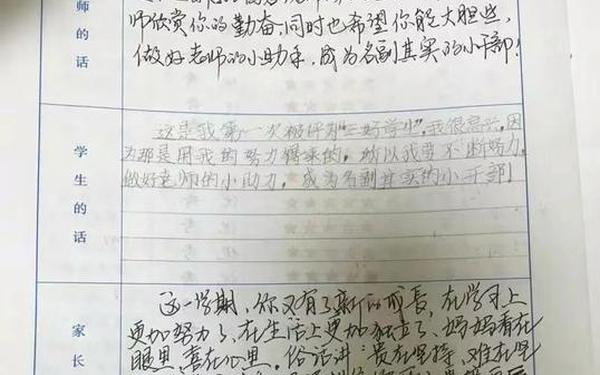 师的话
师欣赏你的勤奋,同时也希望你能大胆些,
做好老师的小助手,成为名副其实的小干部!
学生的话
这是我第一次被评为“三好学生”,我很高兴,因
为那是用我的努力得来的,所以我要不断努力,
做好老师的小助力,成为名副其实的小干部!
家长
这一学期,你又有了新的成长,在学习上
更加努力了,在生活上更加独立了,妈妈看在
眼里,喜在心里。俗话讲:贵在坚持、难在坚